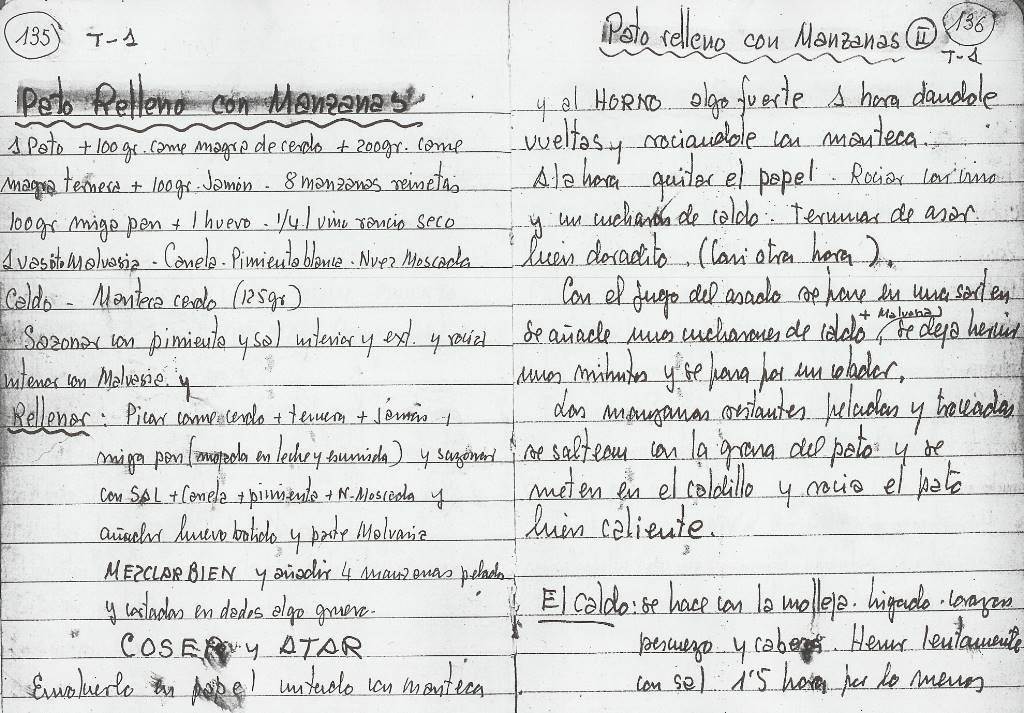 135 T-1
Pato Relleno con Manzanas
1 Pato + 100 gr. carne magra de cerdo + 200 gr. carne
magra ternera + 100 gr. Jamón - 8 manzanas reinetas
100 gr miga pan + 1 huevo - 1/4 l vino rancio seco
1 vasito Malvasia - Canela - Pimienta blanca - Nuez Moscada
Caldo - Manteca cerdo (125 gr)
Sazonar con pimienta y sal interior y ext. y rociar
interior con Malvasia y
Rellenar: Picar carne cerdo + ternera + Jamón y
miga pan (mojada en leche y exurrida) y sazonar
con SAL + Canela + pimienta + N-Moscada y
añadir huevo batido y parte Malvasia
MEZCLAR BIEN y añadir 4 manzanas peladas
y cortadas en dados algo grueso.
COSER y ATAR
Envolverlo en papel untado con manteca
Pato relleno con Manzanas II 136
T-1
y al HORNO algo fuerte 1 hora dandole
vueltas y rociandole con manteca.
A la hora quitar el papel. Rociar con vino
y un cucharón de caldo. Terminar de asar
bien doradito. (Casi otra hora).
Con el jugo del asado se pone en una sarten
se añade unos cucharones de caldo + Malvasia, se deja hervir
unos minutos y se pasa por un colador.
Las manzanas restantes peladas y troceadas
se saltean con la grasa del pato y se
meten en el caldillo y rocia el pato
bien caliente.
El caldo: se hace con la molleja - higado - corazon
pescuezo y cabeza. Hervir lentamente
con sal 1'5 hora por lo menos